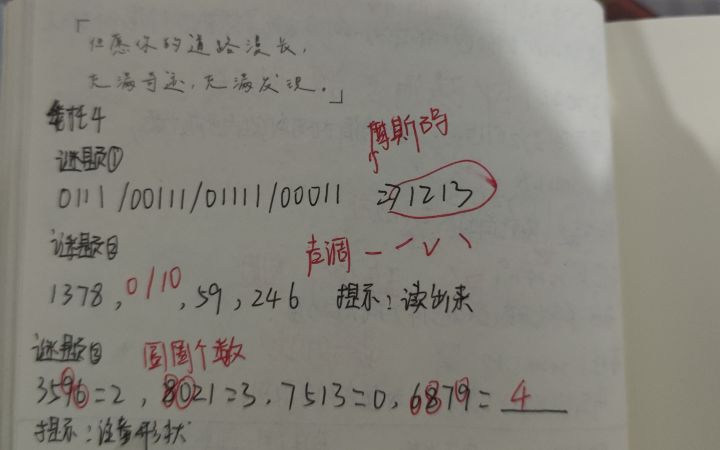 「但愿你的道路漫长，
充满奇迹，充满发现。」
委托4
谜题①
摩斯码
0111/00111/01111/00011 291213
谜题②
声调 一 ˊ ˇ ˋ
1378，0/10，59，246 提示：读出来
谜题③ 圆圈个数
3596=2，8021=3，7513=0，6879=4
提示：注意形状